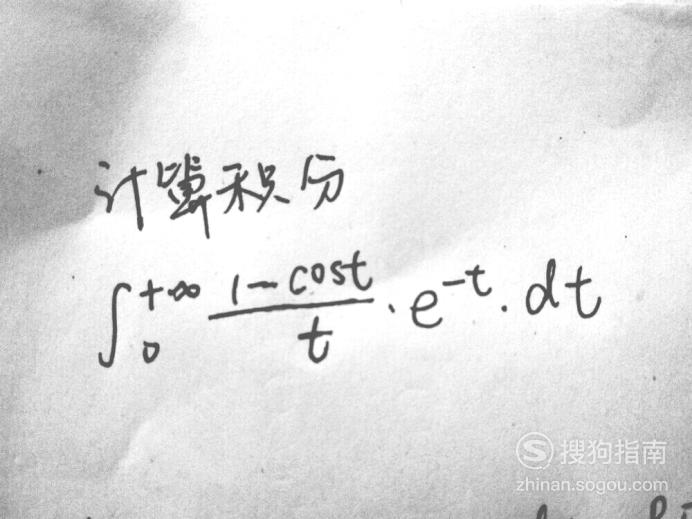 计算积分
∫₀^{+∞} (1-cost)/t · e^{-t} · dt
搜狗指南
zhinan.sogou.com